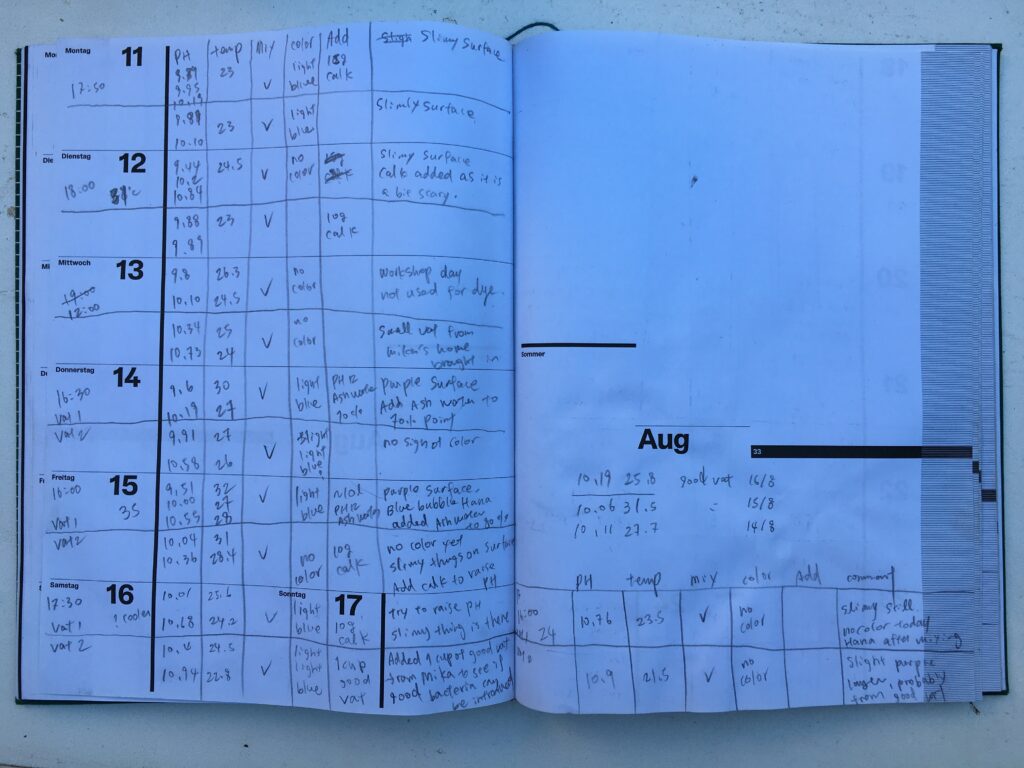 PH temp Mix color Add
Montag 11
17:50
9.89 23 light 10g Slimy Surface
9.95 ✓ blue calk
10.19
9.89 23 ✓ light Slimly Surface
10.10 blue
Dienstag 12
18.00
9.44 24.5 no Slimy Surface
10.2 ✓ color calk added as it is
10.84 a bit scary.
9.88 23 ✓ 10g
9.89 calk
Mittwoch 13
19:00
12:00
9.8 26.3 no workshop day
10.10 24.5 ✓ color not used for dye.
10.34 25 no Small vat from
10.73 24 ✓ color Mika's home
brought in
Donnerstag 14
16:30
vat 1
9.6 30 ✓ light PH12 purple Surface
10.19 27 blue Ash water Add Ash water to
70% point
vat 2
9.91 27 light no sign of color
10.58 26 ✓ light
blue?
Freitag 15
16:00 35
vat 1
9.51 32 light PH12 purple surface.
10.00 27 ✓ blue Ash water Blue bubble Hana
10.55 28 added Ash water
vat 2
10.04 31 10g no color yet
10.36 28.4 ✓ no calk slimy things on surface
color Add calk to raise
PH
Samstag 16
17:30
vat 1
25.6 light 10g Try to raise PH
24.2 ✓ blue calk slimy thing is there
Sonntag 17
vat 2
24.5 light 1 cup Added 1 cup of good vat
10.94 22.8 ✓ light good from Mika to see if
blue vat good bacteria can
be introduced
Sommer
Aug
33
10.19 25.8 good vat 16/8
10.06 31.5 " 15/8
10.11 27.7 14/8
PH temp Mix color Add comment
16:00
24
10.76 23.5 ✓ no slimy still
color no color today
Hana after mixing
10.9 21.5 ✓ no Slight purple
color layer, probably
from good vat